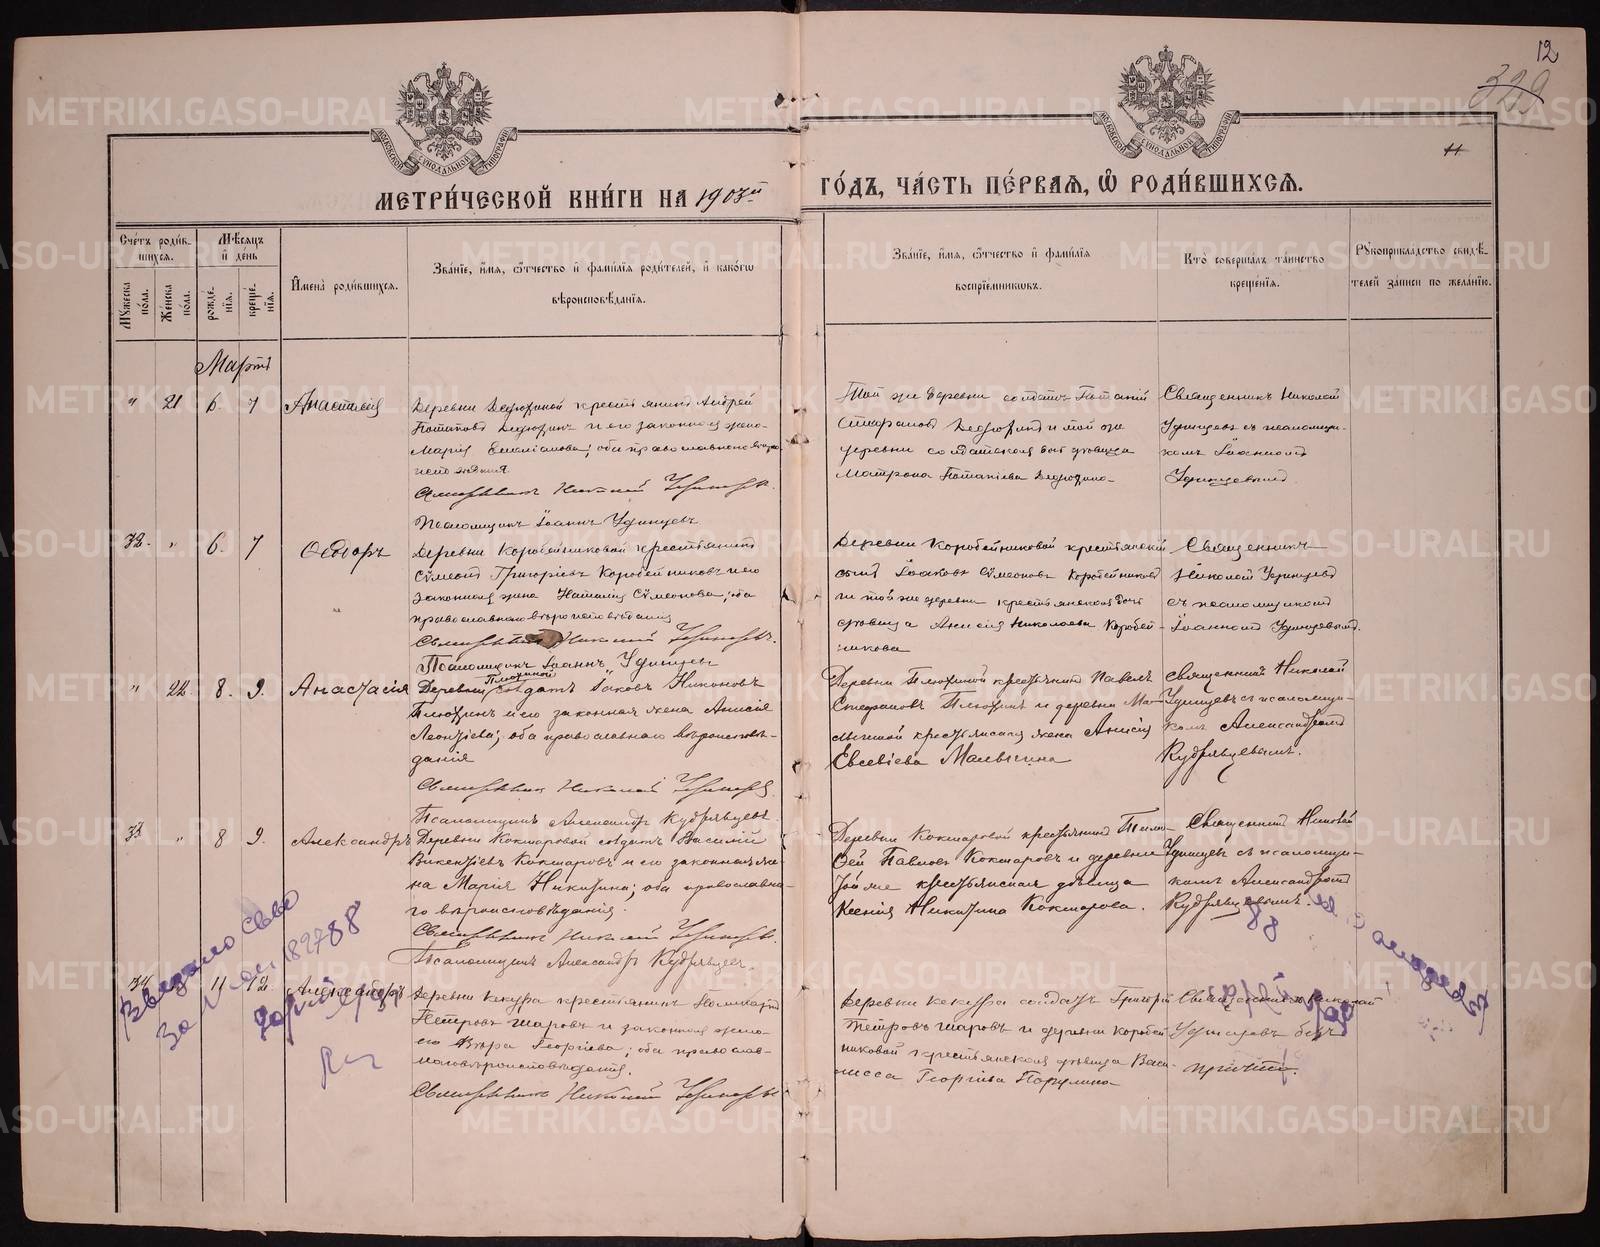 12
329
11
МОСКОВСКОЙ СѴНОДАЛЬНОЙ ТИПОГРАФІИ
МОСКОВСКОЙ СѴНОДАЛЬНОЙ ТИПОГРАФІИ
МЕТРИ́ЧЕСКОЙ КНИ́ГИ НА 1903й ГО́ДЪ, ЧА́СТЬ ПЕ́РВАѦ, Ѽ РОДИ́ВШИХСѦ.
Сче́тъ роди́в-
шихсѧ.
Мꙋ́жеска по́ла.
Же́нска по́ла.
Мѣ́сѧцъ и҆ де́нь
рожде́нїѧ.
креще́нїѧ.
И҆мена̀ роди́вшихсѧ.
Зва́нїе, и҆́мѧ, ѻ҆́тчество и҆ фами́лїѧ роди́телей, и҆ како́гѡ
вѣроисповѣ́данїѧ.
Зва́нїе, и҆́мѧ, ѻ҆́тчество и҆ фами́лїѧ
воспрїе́мникѡвъ.
Кто̀ соверша́лъ та́инство
креще́нїѧ.
Рꙋкоприкла́дство свидѣ́-
телей за́писи по жела́нїю.
Мартъ
" 21 6. 7 Анастасія
Деревни крестьянинъ Андрей
Потаповъ и его законная жена
Марія Емиліанова; оба православнаго
Священникъ Николай Удинцевъ.
Псаломщикъ Іоаннъ Удинцевъ
Той же деревни солдатъ
и той же
деревни солдатская дочь дѣвица
Матрона
Священникъ Николай
Удинцевъ съ псаломщи-
комъ Іоанномъ
Удинцевымъ
32. " 6. 7 Ѳеодоръ
Деревни Коробейниковой крестьянинъ
Сѵмеонъ Григоріевъ Коробейниковъ и его
законная жена Наталія Сѵмеонова; оба
православнаго вѣроисповѣданія
Священникъ Николай Удинцевъ.
Псаломщикъ Іоаннъ Удинцевъ
Деревни Коробейниковой крестьянскій
сынъ Іаковъ Сѵмеоновъ Коробейниковъ
и той же деревни крестьянская дочь
дѣвица Анисія Николаева Коробей-
никова
Священникъ
Николай Удинцевъ
съ псаломщикомъ
Іоанномъ Удинцевымъ.
" 22. 8. 9. Анастасія
Деревни Плюхиной солдатъ Іаковъ Никоновъ
Плюхинъ и его законная жена Анисія
Леонтіева; оба православнаго вѣроисповѣ-
данія
Священникъ Николай Удинцевъ
Псаломщикъ Александръ Кудрявцевъ.
Деревни Плюхиной крестьянинъ Павелъ
Стефановъ Плюхинъ и деревни Ма-
лыгиной крестьянская жена Анисія
Евсевіева Малыгина
Священникъ Николай
Удинцевъ съ псаломщи-
комъ Александромъ
Кудрявцевымъ.
33 " 8 9. Александръ
Деревни Кокшаровой солдатъ Василій
Викентіевъ Кокшаровъ и его законная же-
на Марія Никитина; оба православна-
го вѣроисповѣданія.
Священникъ Николай Удинцевъ.
Псаломщикъ Александръ Кудрявцевъ.
Деревни Кокшаровой крестьянинъ Тимо-
ѳей Павловъ Кокшаровъ и деревни
той же крестьянская дѣвица
Ксенія Никитина Кокшарова.
Священникъ Николай
Удинцевъ съ псаломщи-
комъ Александромъ
Кудрявцевымъ.
34 11 12. Александръ
Деревни Кекура крестьянинъ
Петровъ Шаровъ и законная жена
его Вѣра Георгіева; оба православ-
наго вѣроисповѣданія.
Священникъ Николай Удинцевъ
Деревни Кекура солдатъ Григорій
Петровъ Шаровъ и деревни Коробей-
никовой крестьянская дѣвица Васи-
лисса Георгіева
Священникъ Николай
Удинцевъ безъ
причта.